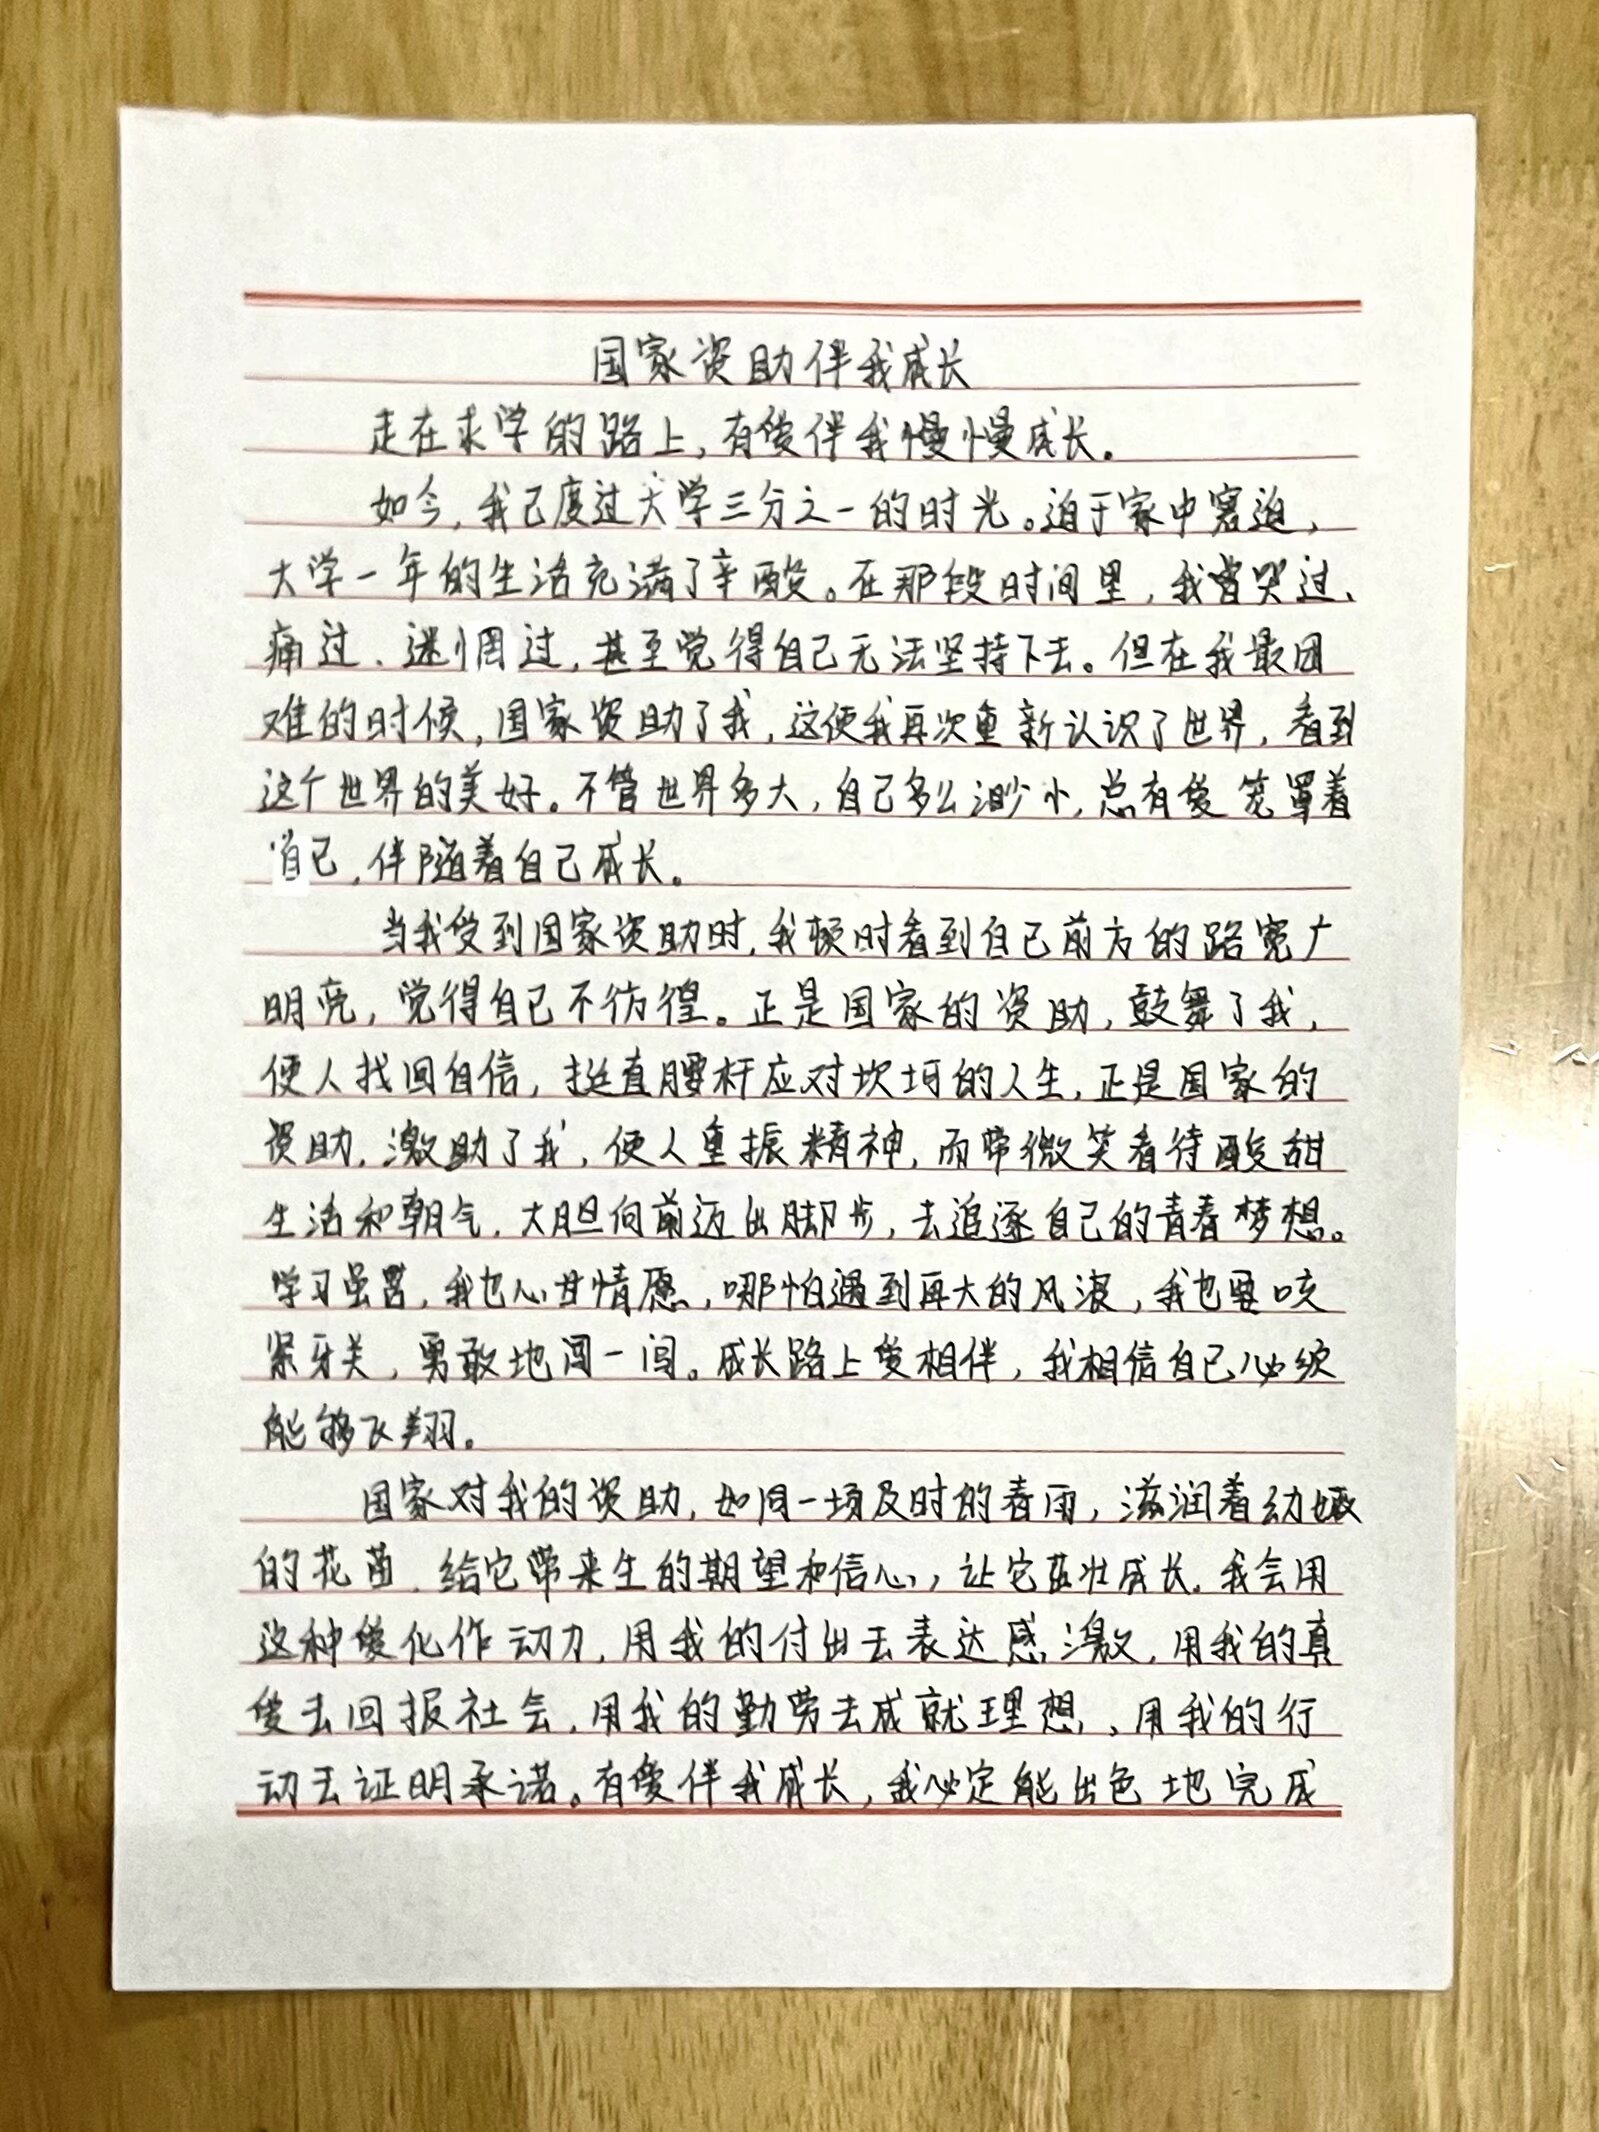 国家资助伴我成长
走在求学的路上,有爱伴我慢慢成长。
如今,我已度过大学三分之一的时光。迫于家中窘迫,
大学一年的生活充满了辛酸。在那段时间里,我曾哭过、
痛过、迷惘过,甚至觉得自己无法坚持下去。但在我最困
难的时候,国家资助了我,这使我再次重新认识了世界,看到
这个世界的美好。不管世界多大,自己多么渺小,总有爱笼罩着
自己,伴随着自己成长。
当我受到国家资助时,我顿时看到自己前方的路宽广
明亮,觉得自己不彷徨。正是国家的资助,鼓舞了我,
使人找回自信,挺直腰杆应对坎坷的人生,正是国家的
资助,激励了我,使人重振精神,而带微笑看待酸甜
生活和朝气,大胆向前迈出脚步,去追逐自己的青春梦想。
学习虽苦,我也心甘情愿,哪怕遇到再大的风浪,我也要咬
紧牙关,勇敢地闯一闯。成长路上爱相伴,我相信自己必须
能够飞翔。
国家对我的资助,如同一场及时的春雨,滋润着幼嫩
的花苗,给它带来生的期望和信心,让它茁壮成长。我会用
这种爱化作动力,用我的付出去表达感激,用我的真
爱去回报社会,用我的勤劳去成就理想,用我的行
动去证明承诺。有爱伴我成长,我必定能出色地完成